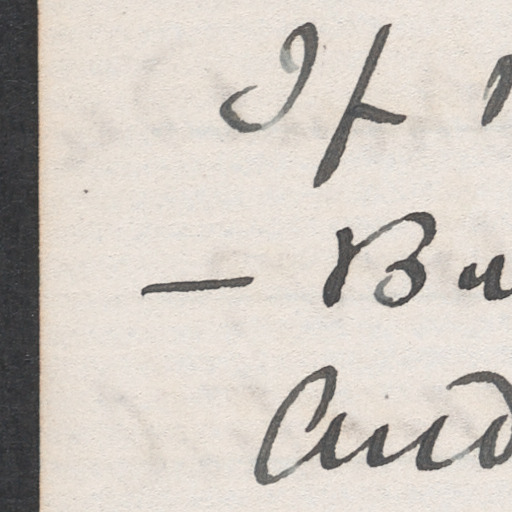 If
— Bu
And